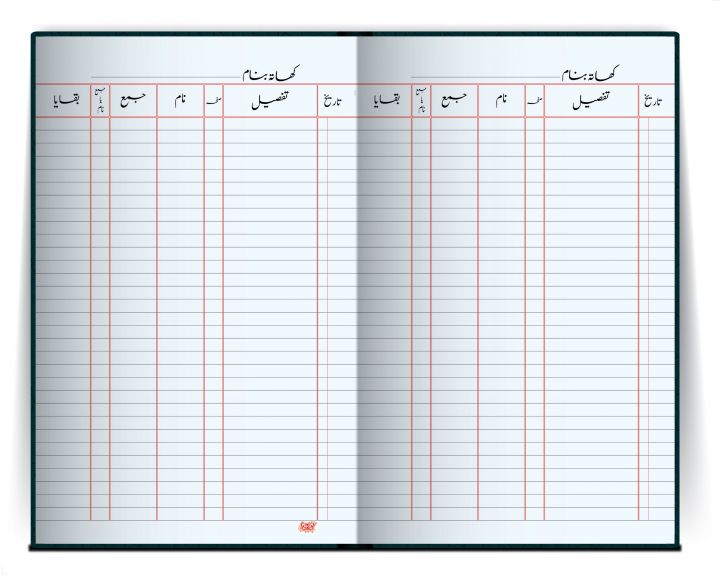 کھاتہ بنام
تاریخ تفصیل صفحہ نام جمع جمع یا نام بقایا
کھاتہ بنام
تاریخ تفصیل صفحہ نام جمع جمع یا نام بقایا